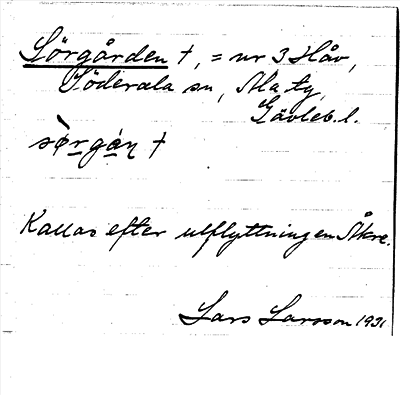 Sörgården †, = nr 3 Håv,
Söderala sn, Ala tg,
Gävleb. l.
sø̀rgán †
Kallas efter utflyttningen Åkre.
Lars Larsson 1931